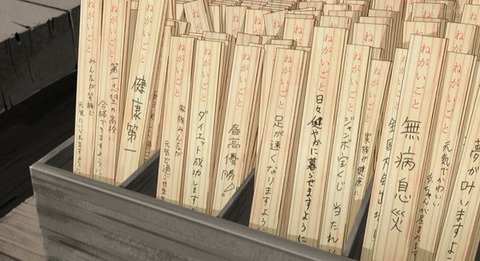 ねがいごと
みんなが笑顔で
元気になりますように
ねがいごと
第一志望の高校に
合格できますように
ねがいごと
健康第一
ねがいごと
家族みんなが
元気で過ごせます
ねがいごと
ダイエット成功します
ねがいごと
春高優勝
ねがいごと
足が速くなりますように
ねがいごと
日々健やかに暮らせますように
ねがいごと
ジャンボ宝くじ当たれ
ねがいごと
家族が健康に
ねがいごと
全国大会
ねがいごと
無病息災
ねがいごと
元気でかわいい
ねがいごと
夢が叶いますよ